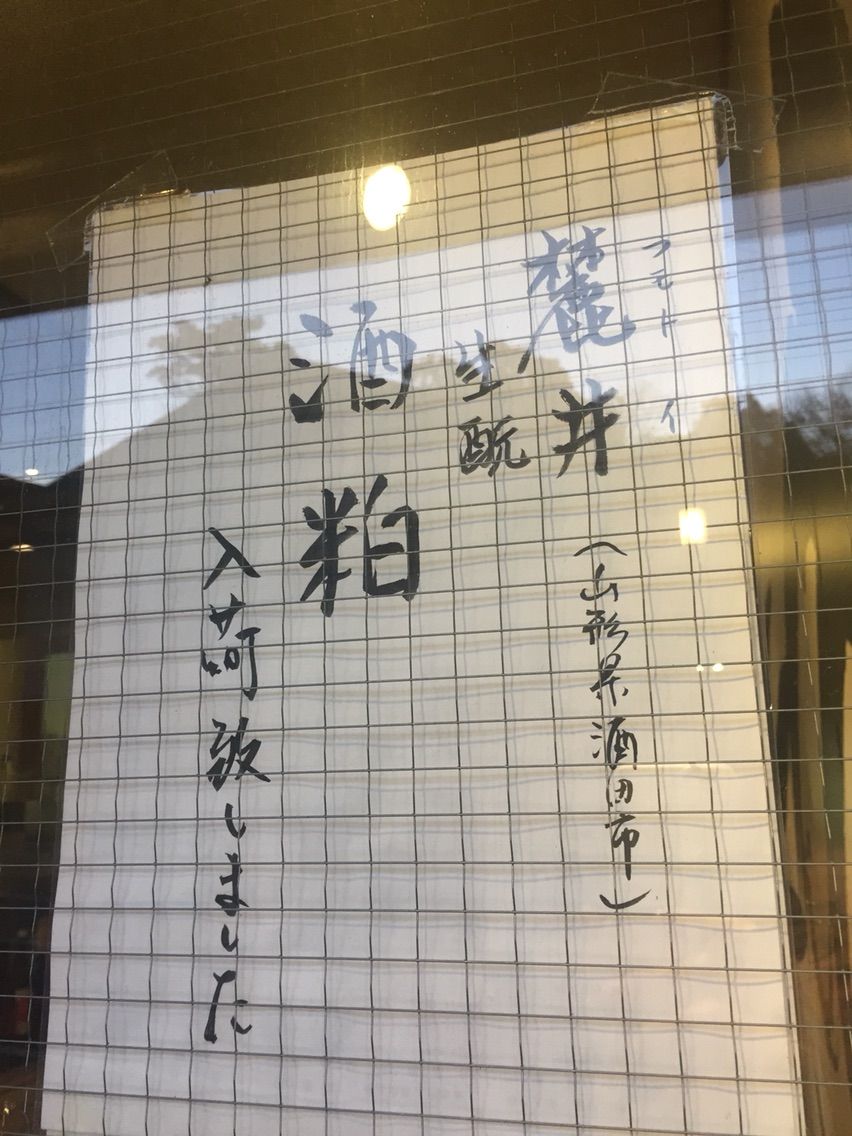 フモトイ
麓井
(山形県酒田市)
生酛
酒粕
入荷致しました